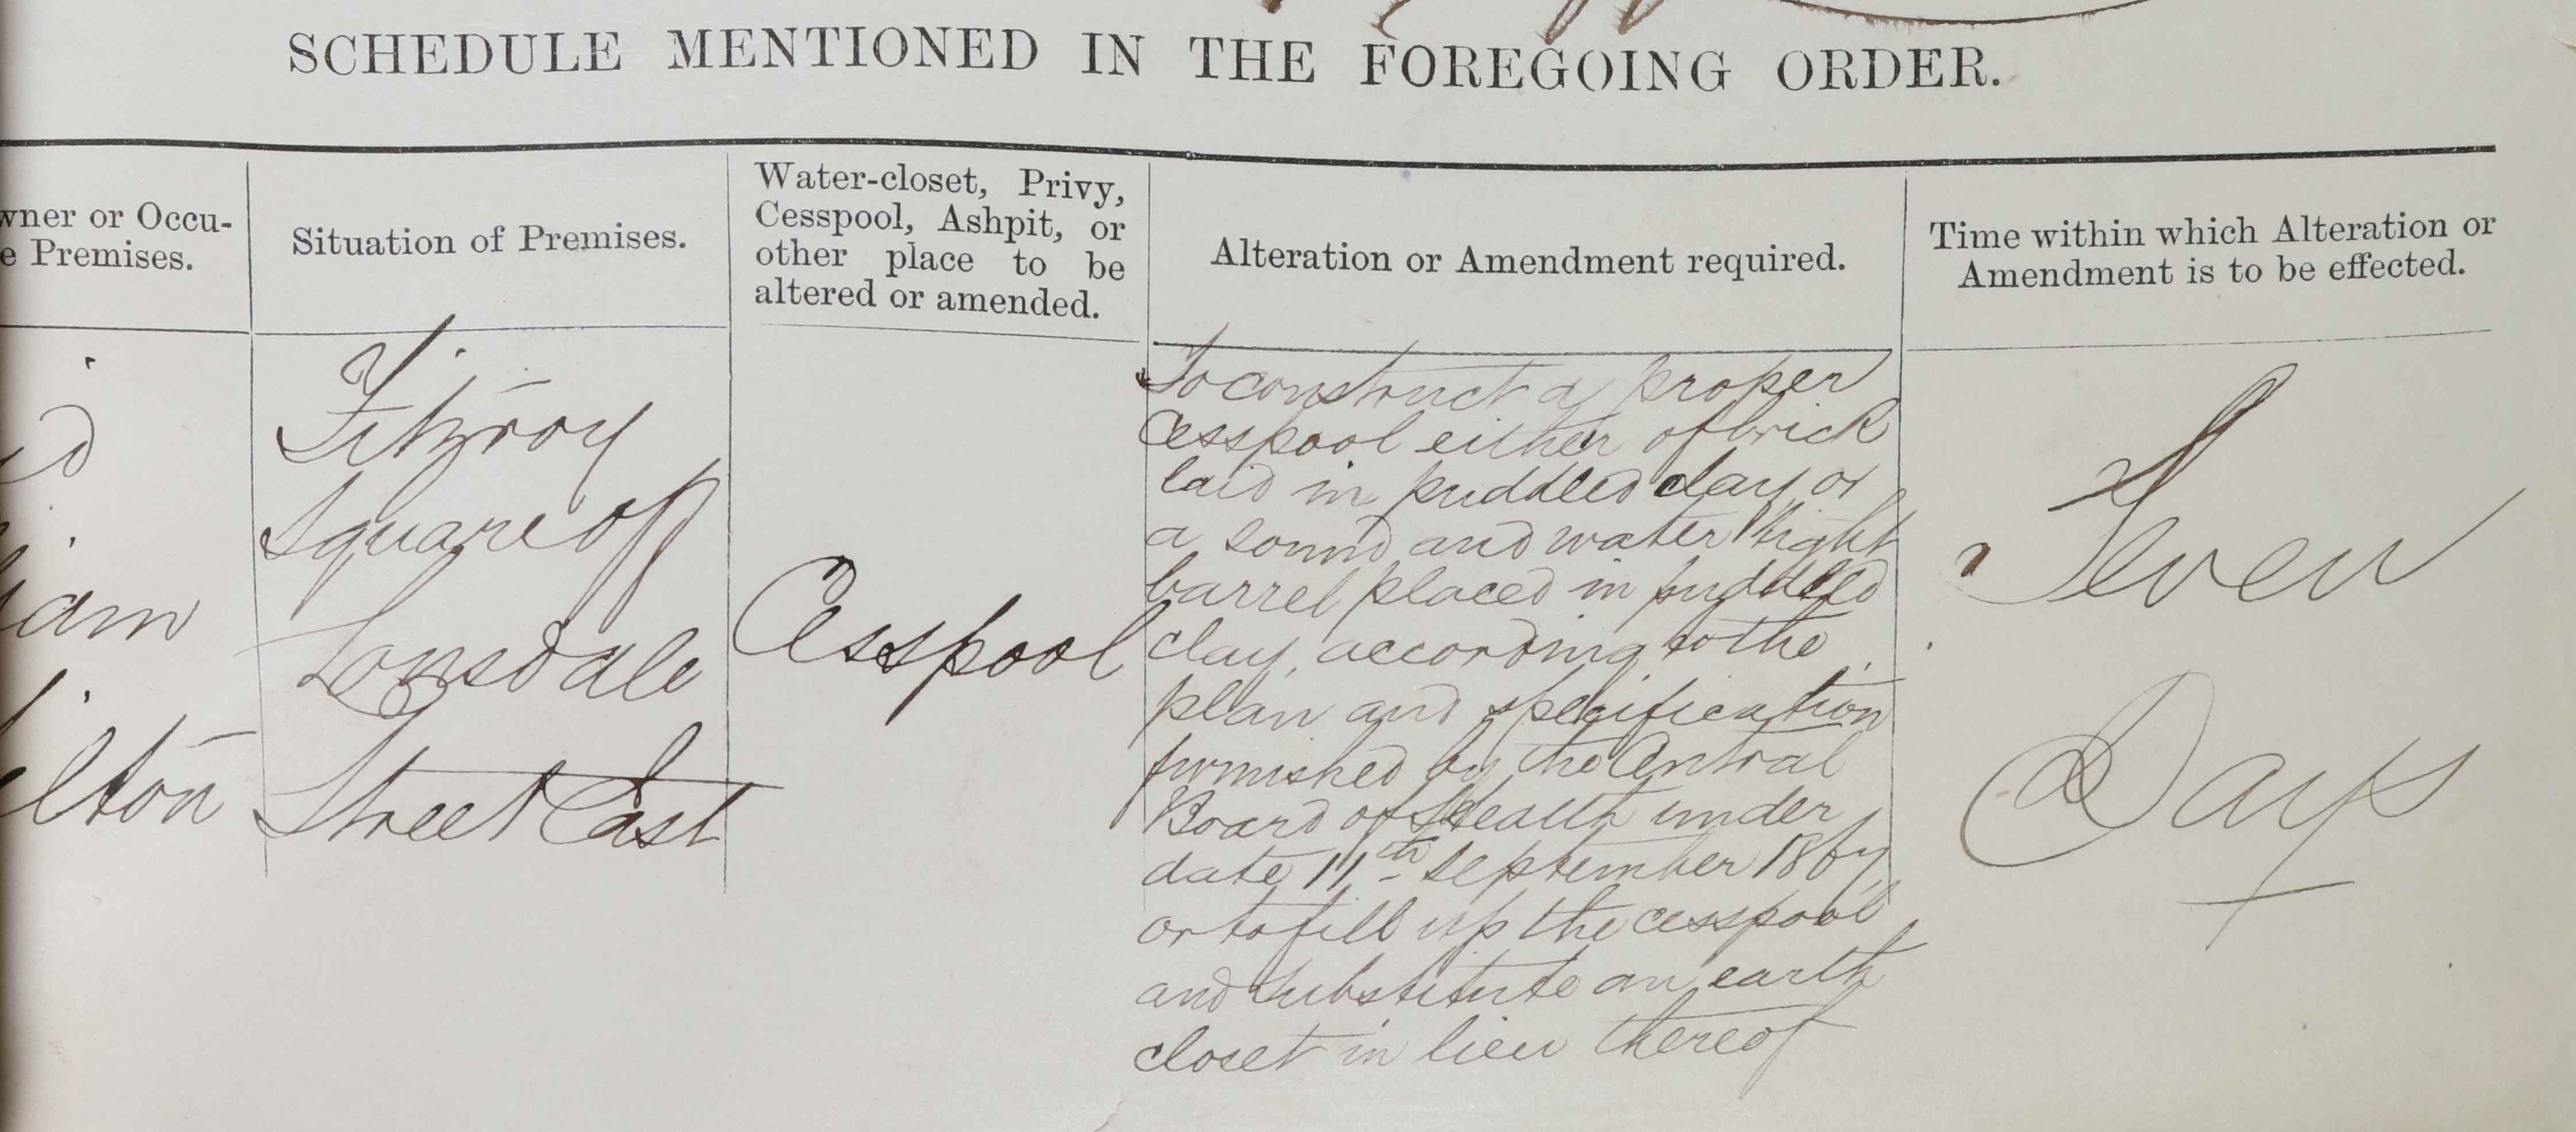 SCHEDULE MENTIONED IN THE FOREGOING ORDER.
wner or Occu-
e Premises.
Situation of Premises.
Water-closet, Privy,
Cesspool, Ashpit, or
other place to be
altered or amended.
Alteration or Amendment required.
Time within which Alteration or
Amendment is to be effected.
am
lton
Fitzroy
Square off
Lonsdale
Street East
Cesspool
To construct a proper
Cesspool either of brick
laid in puddled clay or
a sound and water tight
barrel placed in puddled
clay, according to the
plan and specification
furnished by the Central
Board of Health under
date 11th September 1867
or to fill up the cesspool
and substitute an earth
closet in lieu thereof
Seven
Days